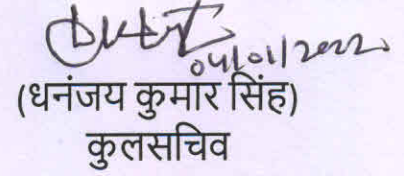 04/01/2022
(धनंजय कुमार सिंह)
कुलसचिव